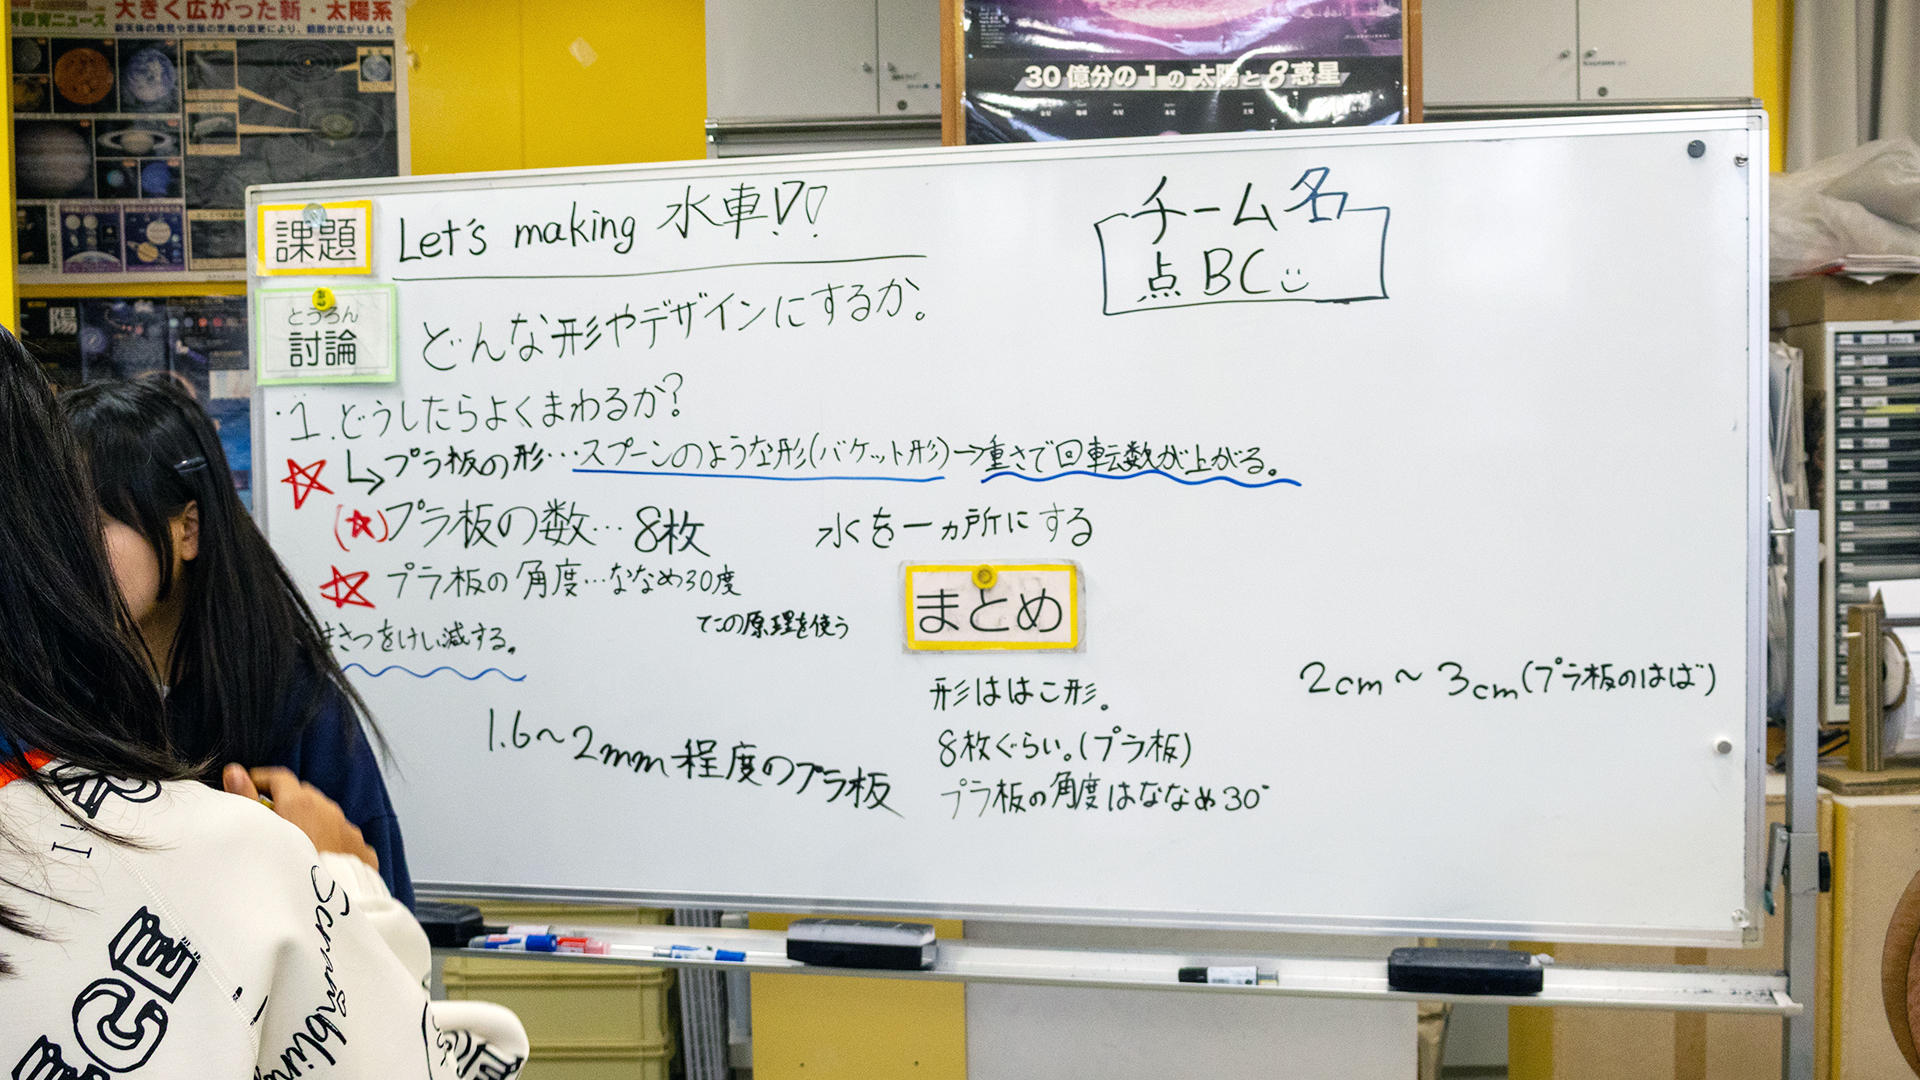 大きく広がった新・太陽系
30億分の1の太陽と8惑星
課題
Let's making 水車!!
チーム名
点BC
とうろん
討論
どんな形やデザインにするか。
1.どうしたらよくまわるか?
↳プラ板の形…スプーンのような形(バケット形)→重さで回転数が上がる。
(☆)プラ板の数…8枚
水を一ヵ所にする
☆プラ板の角度…ななめ30度
てこの原理を使う
まさつをけい減する。
まとめ
形ははこ形。
2cm〜3cm(プラ板のはば)
1.6〜2mm程度のプラ板
8枚ぐらい。(プラ板)
プラ板の角度はななめ30°